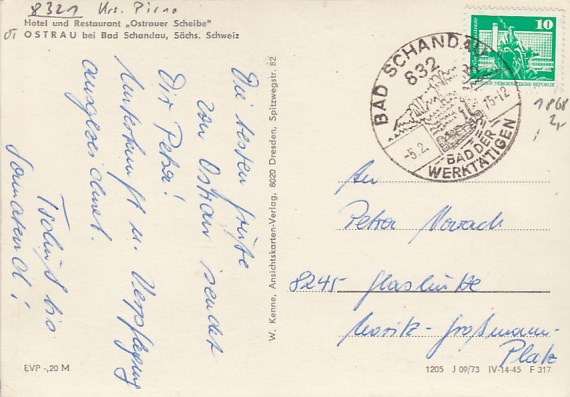 8321 Krs. Pirna
Hotel und Restaurant „Ostrauer Scheibe"
OSTRAU bei Bad Schandau, Sächs. Schweiz
Die besten Grüße
von Ostrau sendet
Dir Petra!
Unterkunft u. Verpflegung
ausgezeichnet.
Tschüß bis
Sonnabend!
EVP -,20 M
W. Kenne, Ansichtskarten-Verlag, 8020 Dresden, Spitzwegstr. 82
10
DEUTSCHE DEMOKRATISCHE REPUBLIK
BAD SCHANDAU
832
-5.2.
15-12
BAD DER
WERKTÄTIGEN
An
Petra
8245 Glashütte
Moritz-Großmann-
Platz
1205 J 09/73 IV-14-45 F 317